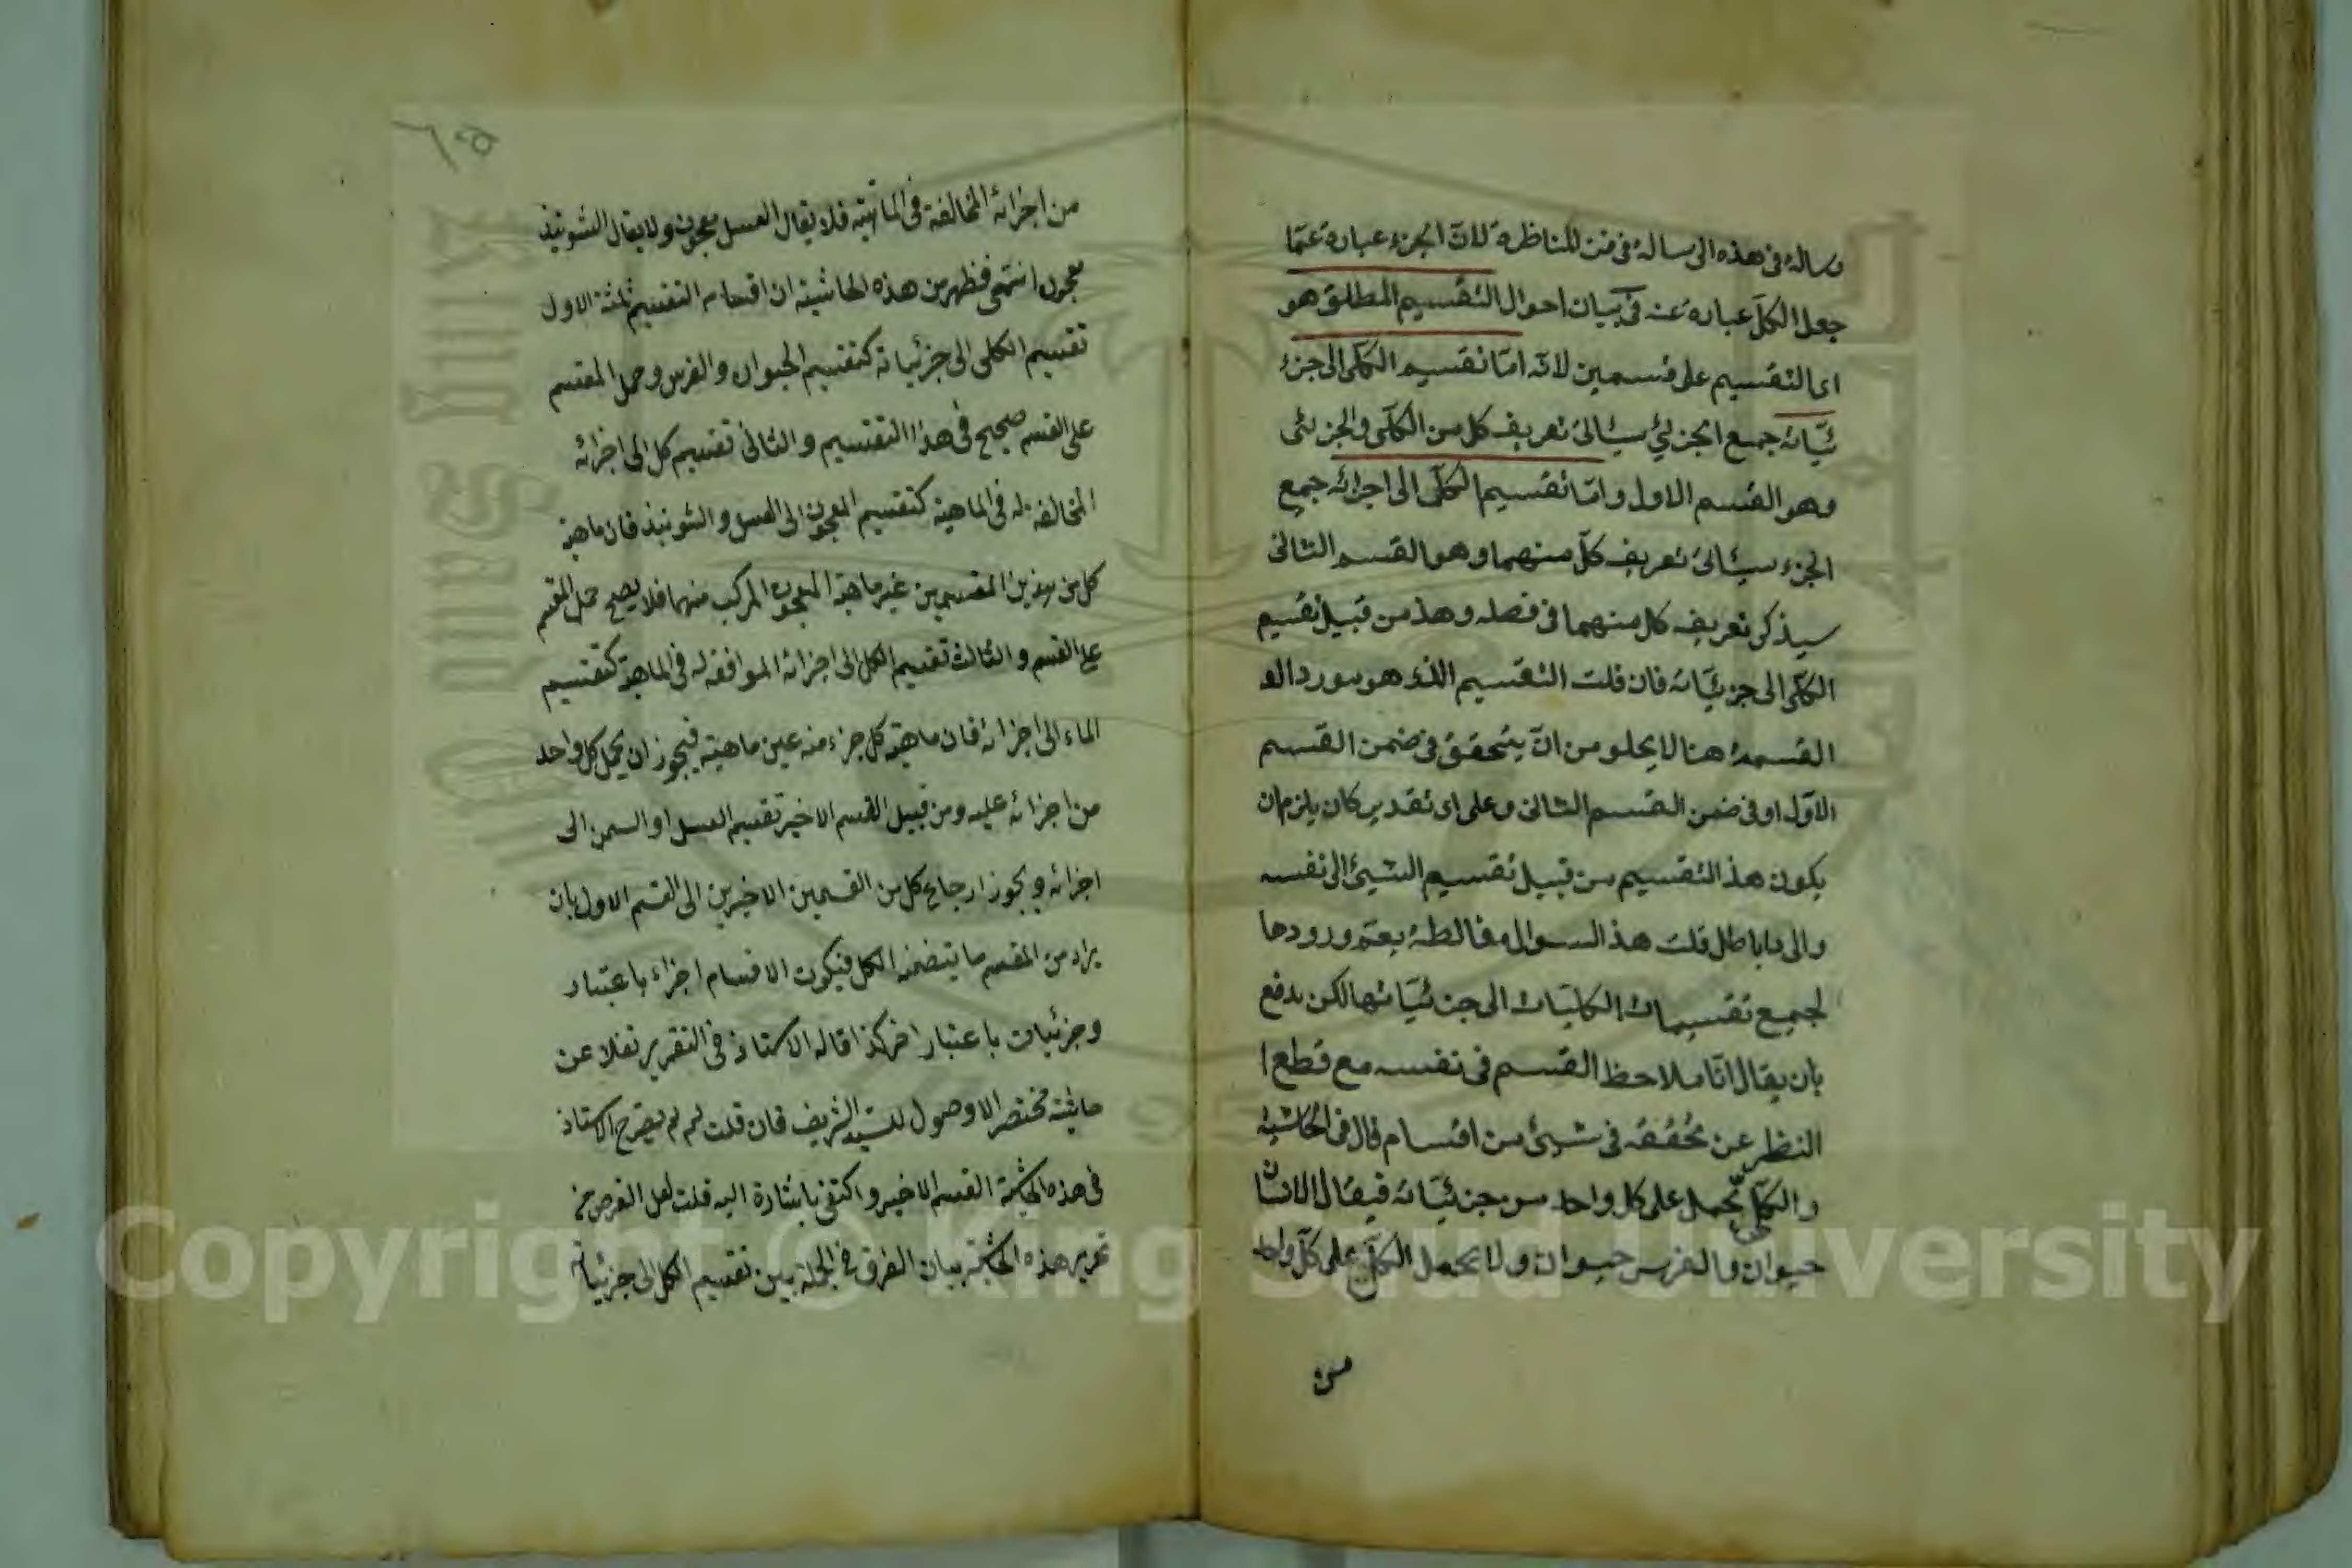 رساله فى هذه الى رسالة فى فن المناظرة لان الجزء عبارة عما
جعل الكل عبارة عنه فى بيان احوال التقسيم المطلق هو
اى التقسيم على قسمين لانه اما تقسيم الكلى الى جزء
ئياته جمع الجزئى سيئاتى تعريف كل من الكلى والجزئى
وهو القسم الاول واما تقسيم الكلى الى اجزائه جمع
الجزء سيئاتى تعريف كل منهما وهو القسم الثانى
سيذكر تعريف كل منهما فى فصله وهذ من قبيل تقسيم
الكلى الى جزئياته فان قلت التقسيم الذى هو مورد الو
القسمة هنا لا يخلو من ان يتحقق فى ضمن القسم
الاول او فى ضمن القسم الثانى وعلى اى تقدير كان يلزم ان
يكون هذ التقسيم من قبيل تقسيم الشيئ الى نفسه
والى باطل قلت هذ السوال مغالطة يعم ورودها
لجميع تقسيمات الكليات الى جزئياتها لكن يدفع
بان يقال انا ملاحظ القسم فى نفسه مع قطع ا
النظر عن تحققه فى شيئ من اقسام قال فى الحاشية
والكلى يحمل على كل واحد من جزئياته فيقال الانسان
حيوان والفرس حيوان ولا يحمل الكل على كل واحد
من
٦٥
من اجزائه المخالفة فى الماهية فلا يقال العسل معجون ولا يقال الشونيذ
معجون انتهى فظهر من هذه الحاشية ان اقسام التقسيم ثلثة الاول
تقسيم الكلى الى جزئياته كتقسيم الحيوان والفرس وحمل المقسم
على القسم صحيح فى هذا التقسيم والثانى تقسيم كل الى اجزائه
المخالفة له فى الماهية كتقسيم المعجون الى العسل والشونيذ فان ماهية
كل من هذين المقسمين غير ماهية المعجون المركب منهما فلا يصح حمل المقسم
على القسم والثالث تقسيم الكل الى اجزائه الموافقه له فى الماهية كتقسيم
الماء الى اجزائه فان ماهية كل جزء منه عين ماهيته فيجوز ان يحمل كل واحد
من اجزائه عليه ومن قبيل القسم الاخير تقسيم العسل او السمن الى
اجزائه ويجوز ارجاع كل من القسمين الاخيرين الى القسم الاول بان
يراد من المقسم ما يتضمنه الكل فيكون الاقسام اجزاء باعتبار
وجزئيات باعتبار اخر كذا قاله الاستاذ فى التقرير نقلا عن
حاشية مختصر الاوصول للسيد الشريف فان قلت لم لم يصرح الاستاذ
فى هذه الحاشية القسم الاخير واكتفى باشارة اليه قلت لعل الغرض من
تحرير هذه الحاشية بيان الفرق فى الجملة بين تقسيم الكل الى جزئياته
Copyright © King Saud University